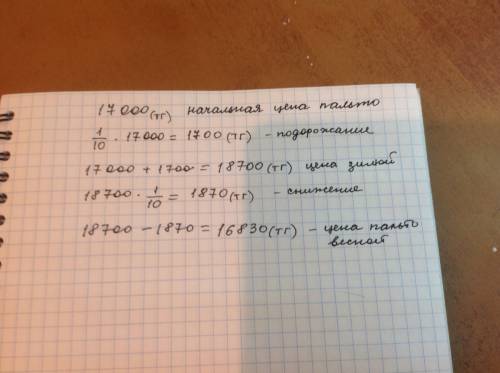 17000(тг) начальная цена пальто
1/10 · 17000 = 1700 (тг) - подорожание
17000 + 1700 = 18700 (тг) цена зимой
18700 · 1/10 = 1870 (тг) - снижение
18700 - 1870 = 16830 (тг) - цена пальто
весной